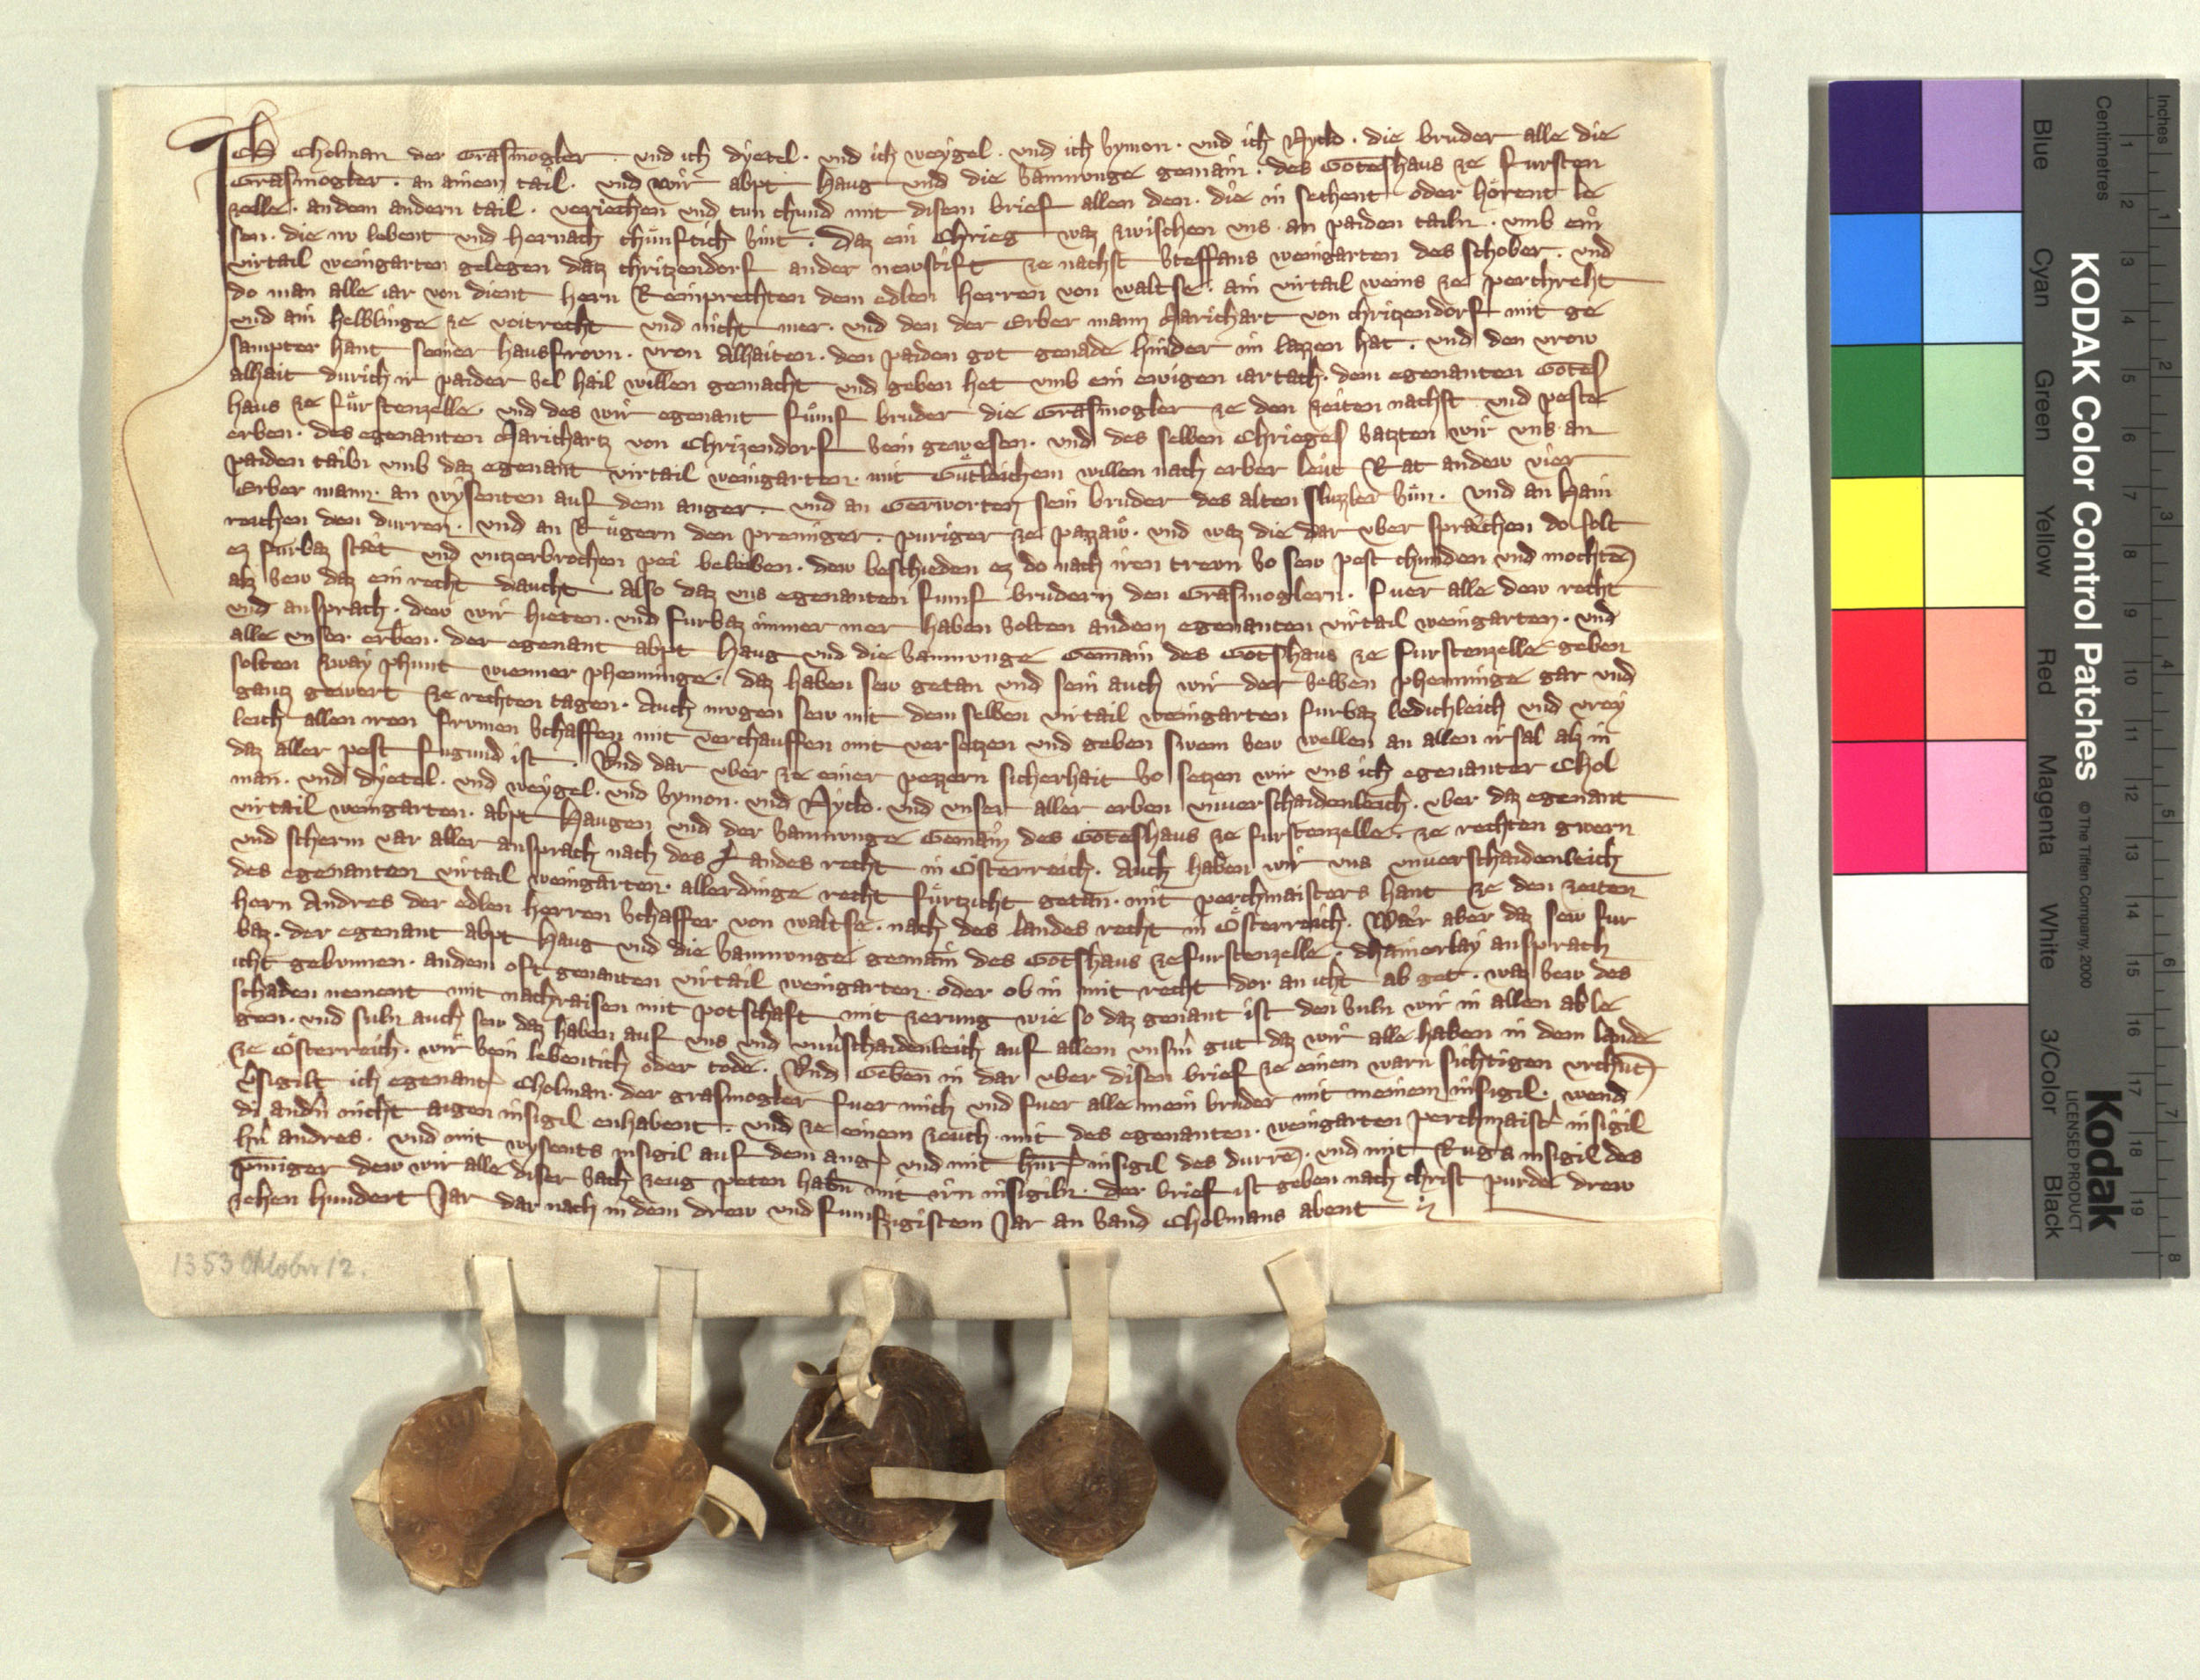 Ich Cholman der Grasmogler · vnd ich dyetel · vnd ich weygel · vnd ich symon · vnd ich Nyclo · die bruder alle die
Grasmogler · an ainem tail · vnd wir abpt Haug vnd die samnunge gemain · des Goteshaus ze fursten
zelle · an dem andern tail · veriechen vnd tun chund mit disem brief allen den · die in sechent oder hörent le
sen · die nv lebent vnd hernach chünftich sint · Daz ein Chrieg waz zwischen vns an paiden tailn · vmb ein
virtail weingarten gelegen datz chritzendorf an der newstift ze nachst steffans weingarten des schober · vnd
do man alle iar von dient hern Reinprechten dem edlen herren von waltse · ain virtail weins ze perchreht
vnd ain helblinge ze voitrecht vnd nicht mer · vnd den der Erber mann Marichart von chritzendorf mit ge
sampter hant seiner hausfrovn · vron Alhaiten · den paiden got genade hinder im lazzen hat · vnd den vrow
alhait durich ir paider sel hail willen gemacht vnd geben het vmb ein ewigen iartach · dem egenanten Gotes
haus ze fürstenzelle · vnd des wir egenant fümf bruder die Grasmogler ze den zeiten nachst vnd peste
erben · des egenanten Marichartz von Chrizendorf sein gewesen · vnd des selben Chrieges satzten wir vns an
paiden tailn vmb daz egenant virtail weingarten · mit Gütleichem willen nach erber leüt Rat an dew vier
Erber mann · an wysenten auf dem anger · vnd an Gerworten sein bruder des alten sluzzler sün · vnd an Hain
reichen den durren · vnd an Rügern den preninger · puriger ze pazzaw · vnd waz die dar vber sprächen do solt
ez fürbaz stät vnd vnzerbrochen pei beleiben · dew beschieden ez do nach iren trewn so sew pest chunden vnd mochten
alz sew daz ein recht daucht · also daz vns egenanten fumf brudern den Grasmoglern · fuer alle dew recht
vnd ansprach · dew wir hieten · vnd furbaz immer mer haben solten an dem egenanten virtail weingarten · vnd
alle vnser erben · der egenant abpt Haug vnd die samnunge Gemain des Gotshaus ze furstenzelle geben
solten zway phunt wienner phenninge · daz haben sew getan vnd sein auch wir der selben phenninge gar vnd
gantz gewert ze rechten tagen · Auch mogen sew mit dem selben virtail weingarten furbaz ledichleich vnd vrey
leich allen iren frvmen schaffen mit verchauffen mit versetzen vnd geben swem sew wellen an allen irsal alz in
daz aller pest fugund ist · Vnd dar vber ze einer pezzern sicherhait so setzen wir vns ich egenanter Chol
man · vnd dyetel · vnd weygel · vnd symon · vnd Nyclo · vnd vnser aller erben vnuerschaidenleich · vber daz egenant
virtail weingarten · abpt Haugen vnd der samnunge Gemain des Goteshaus ze furstenzelle · ze rechten gwern
vnd scherm var aller ansprach nach des Landes recht in Österreich · Auch haben wir vns vnuerschaidenleich
des egenanten virtail weingarten · allerdinge recht fürtzicht getan · mit perchmaisters hant ze den zeiten
hern Andres der edlen herren schaffer von waltse · nach des landes recht in Österreich · Wär aber daz sew fur
baz · der egenant abpt Haug vnd die samnunge gemain des Gotshaus ze furstenzelle · dhainerlay ansprach
icht gebunnen · an dem oft genanten virtail weingarten · oder ob in mit recht dor an icht ab get · waz sew des
schaden nement mit nachraisen mit potschaft mit zerung wie so daz genant ist den suln wir in allen able
gen · vnd suln auch sew daz haben auf vns vnd vnuschaidenleich auf allem vnsm gut daz wir alle haben in dem lande
ze Österreich · wir sein lebentich oder tode · Vnd Geben in dar vber disen brief ze einem warn sichtigen vrchund
vsigilt ich egenant Cholman · der grasmogler fuer mich vnd fuer alle mein bruder mit meinem insigil · wend
di andn nicht aigen insigil enhabent · vnd ze einem zeuch · mit des egenanten · weingarten perchmaist insigil
hn andres · vnd mit wysents insigil auf dem ang vnd mit hnr insigil des durren · vnd mit Rugs insigil des
pniger dew wir alle diser sach zeug peten habn mit irn insigiln · der brief ist geben nach christ purde drew
zehen hundert Jar dar nach in dem drew vnd fumfzigistem Jar an sand Cholmans abent
1353 Oktober 12.
KODAK Color Control Patches © The Tiffen Company, 2000
Kodak
LICENSED PRODUCT
Blue Cyan Green Yellow Red Magenta White 3/Color Black
Centimetres 1 2 3 4 5 6 7 8 9 10 11 12 13 14 15 16 17 18 19
Inches 1 2 3 4 5 6 7 8